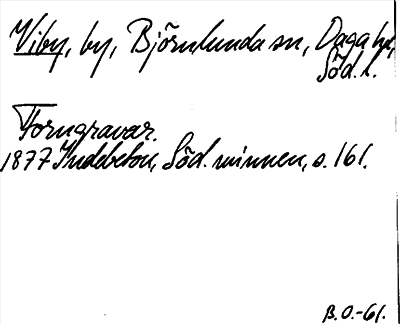 Viby, by, Björnlunda sn, Daga hd,
Söd. l.
Forngravar.
1877 Indebetou, Söd. minnen, s. 161.
B.O.-61.